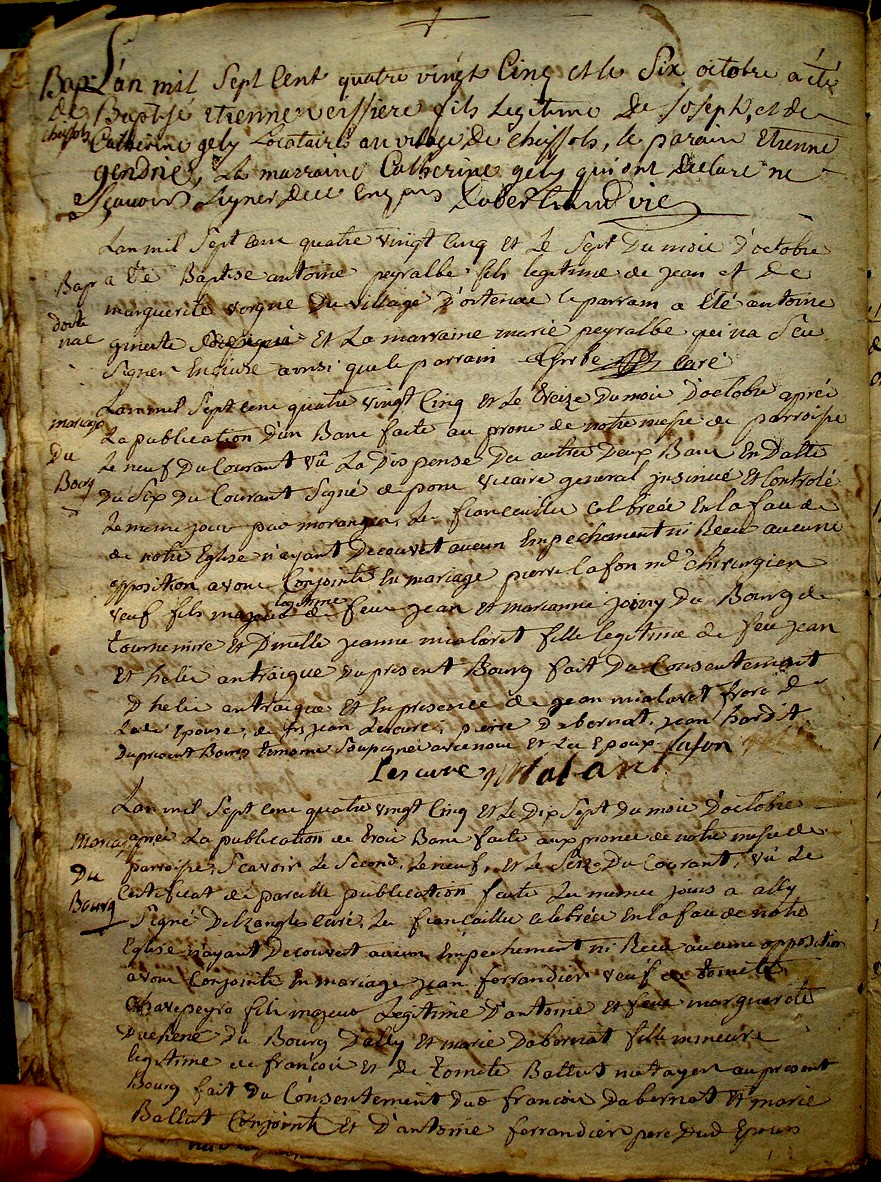 Bap. L'an mil sept cent quatre vingt cinq et le six octobre a été
de Baptisé etienne veissiere fils legitime de joseph, et de
cheissols Catherine gely locataires au vilage de cheissols, le parain etienne
gendre, la marraine Catherine gely qui ont declaré ne
sçavoir signer, de ce enquis Dabertrand vic
Lan mil sept cent quatre vingt cinq et le sept du mois d'octobre
Bap a été Baptisé antoine peyralbe fils legitime de jean et de
marguerite vorgne du village d'ortenac le parrain a été antoine
dorte
nac et la marraine marie peyralbe qui na sçeu
signer ainsi que le parrain curé
mariage Lan mil sept cent quatre vingt cinq et le treize du mois d'octobre après
La publication d'un Banc faite au prone de notre messe de parroisse
du Le neuf du Courant vû La Dispense de autre Deux Banc En Datte
Bourg Du six du Courant signé de pons vicaire general jnsinué et Controlé
Le meme jour par moranges Les fiancailles celebrées En la face de
notre Eglise n'ayant Decouvert aucun Empechement ni Recu aucune
opposition avons Conjoints En mariage pierre lafon md chirurgien
legitime
veuf fils majeur de feu jean et marianne joiny du Bourg de
tournemire et Dmelle jeanne mialaret fille legitime de feu jean
et helie antraigue du present Bourg fait du Consentement
D helie antraigue et En presence de jean mialaret frere de
Lad Epouse, de jean Lescure, pierre dabernat, jean hardit
du present Bourg temoins soussignés avec nous et Led Epoux lafon
Lescure Mialaret
Lan mil sept cent quatre vingt cinq et Le Dix sept du mois d'octobre
Mariage après La publication de trois Banc faite aux prones de notre messe de
Du parroisse, scavoir Le second, Le neuf, et Le seize Du Courant, vû Le
Bourg Certificat de pareille publication faite Les memes jours a ally
signé Delzangles curé, Les fiançailles celebrées En la face de notre
Eglise n'ayant Decouvert aucun Empechement ni Recu aucune opposition
avons Conjoints En mariage jean ferrandier veuf de toinete
Chavepeyre fils majeur Legitime D'antoine et feue marguerite
Duchene du Bourg D'ally et marie Dabernat fille mineure
legitime de françois et de toinete Ballut metayers au present
Bourg fait du Consentement dud francois Dabernat et marie
Ballut Conjoints et D'antoine ferrandier pere dud Epoux